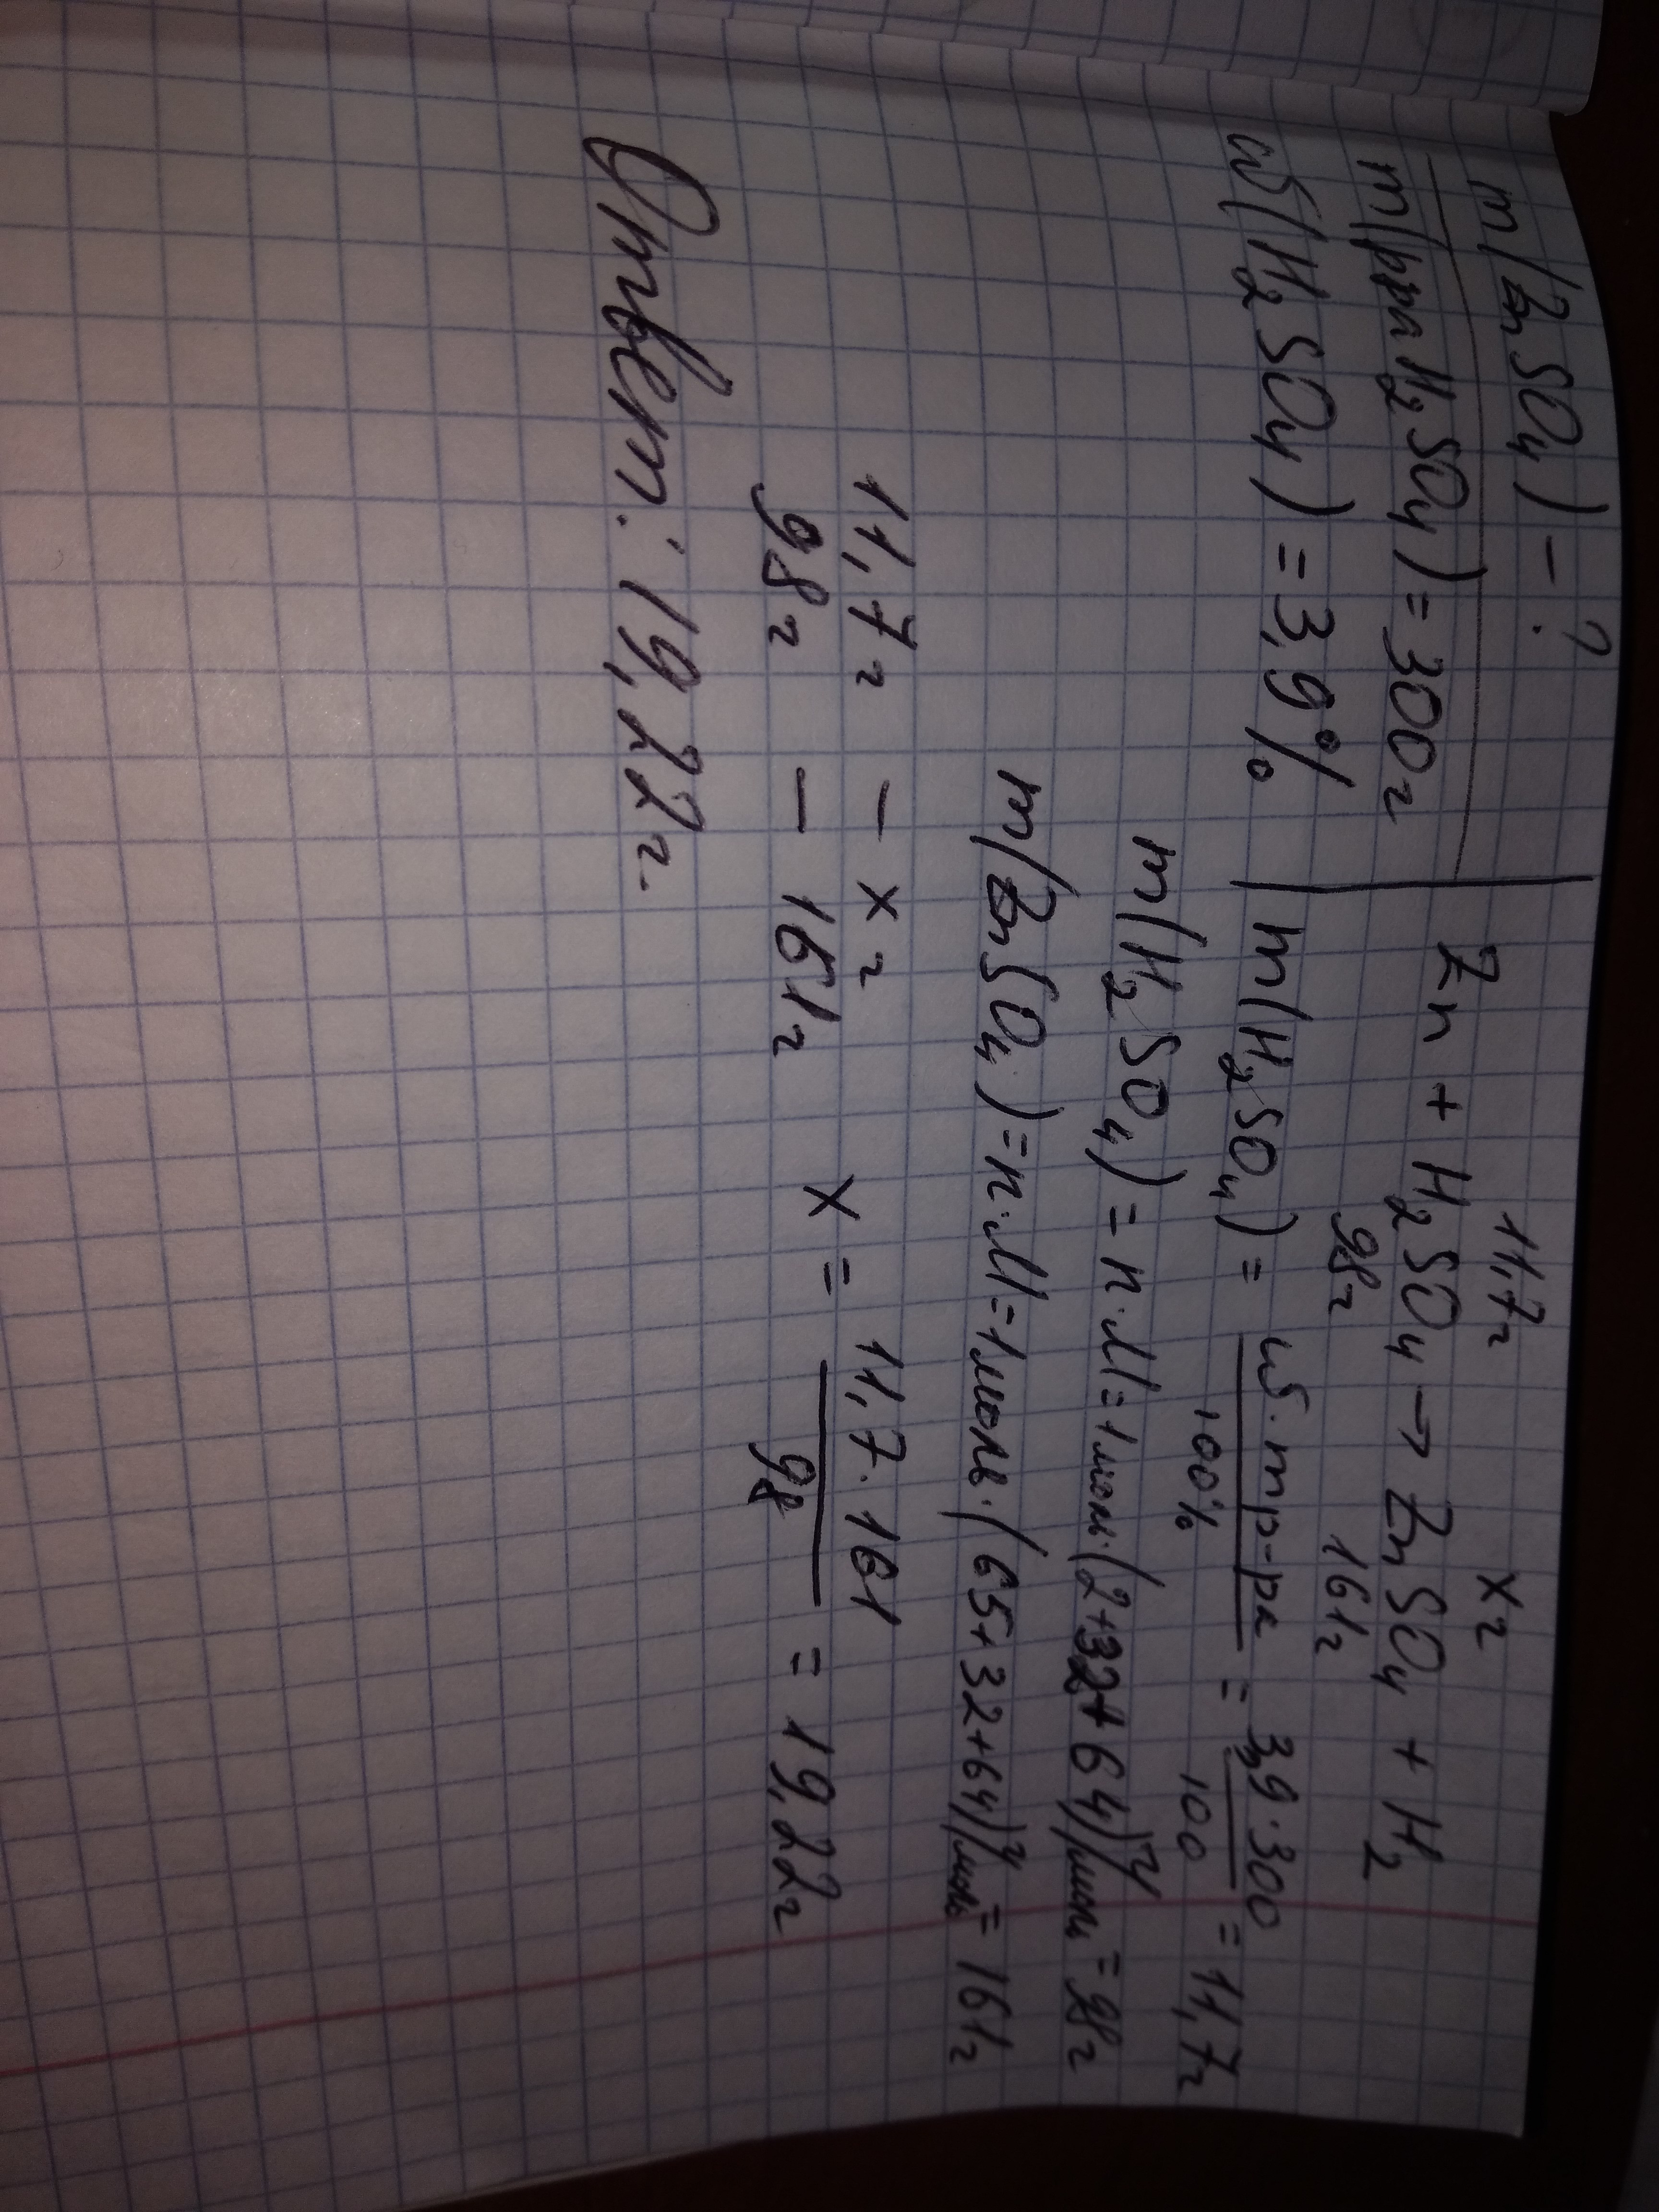 m(ZnSO₄) - ?
m(рра H₂SO₄) = 300г
ω(H₂SO₄) = 3,9%
11,7г xг
Zn + H₂SO₄ → ZnSO₄ + H₂
98г 161г
m(H₂SO₄) = ω · m р-ра / 100% = 3,9 · 300 / 100 = 11,7г
m(H₂SO₄) = n · M = 1моль · (2+32+64) г/моль = 98г
m(ZnSO₄) = n · M = 1моль · (65+32+64) г/моль = 161г
11,7г - xг
98г - 161г
x = 11,7 · 161 / 98 = 19,22г
Ответ: 19,22г.